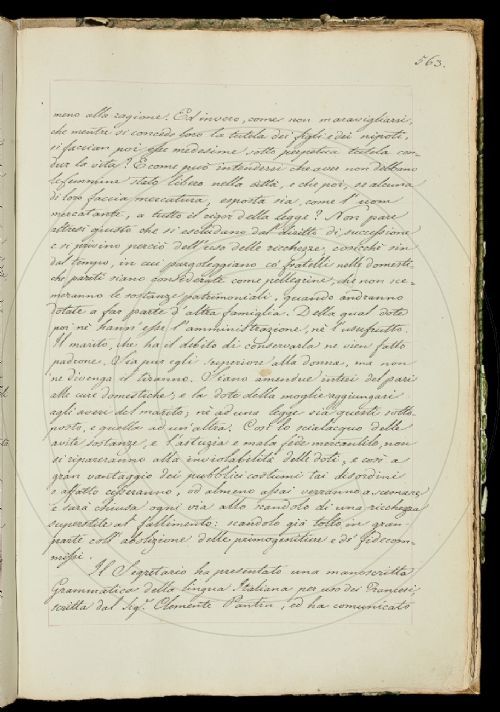 563.
meno alla ragione. Ed invero, come non maravigliarsi,
che mentre si concede loro la tutela dei figli e dei nipoti,
si faccian poi esse medesime sotto perpetua tutela con-
dur la vita? E come può intendersi che aver non debbano
le femmine stato libero nella città, e che poi, se alcuna
di loro faccia mercatura, esposta sia, come l'uom
mercatante, a tutto il rigor della legge? Non pare
altresì giusto che si escludano dal diritto di successione
e si privino perciò dell'uso delle ricchezze, cosicché sin
dal tempo, in cui pargoleggiano co' fratelli nelle domesti-
che pareti siano considerate come pellegrine, che non sce-
meranno le sostanze patrimoniali, quando andranno
dotate a far parte d'altra famiglia. Della qual dote
poi nè hanno esse l'amministrazione, nè l'usufrutto.
Il marito, che ha il debito di conservarla ne vien fatto
padrone. Sia pur egli superiore alla donna, ma non
ne divenga il tiranno. Siano amendue intesi del pari
alle cure domestiche; e la dote della moglie aggiungasi
agli averi del marito; nè ad una legge sia questa sotto-
posta, e quella ad un'altra. Così lo scialacquo delle
avite sostanze, e l'astuzia e mala fede mercantile, non
si ripareranno alla inviolabilità delle doti, e così a
gran vantaggio dei pubblici costumi tai disordini
o affatto cesseranno, od almeno assai verranno a scemare,
e sarà chiusa ogni via allo scandolo di una ricchezza
superstite al fallimento: scandolo già tolto in gran
parte coll'abolizione delle primogeniture e de' fidecom-
missi.
Il Segretario ha presentato una manoscritta
Grammatica della lingua Italiana per uso dei Francesi,
scritta dal Sig.r Clemente ed ha comunicato